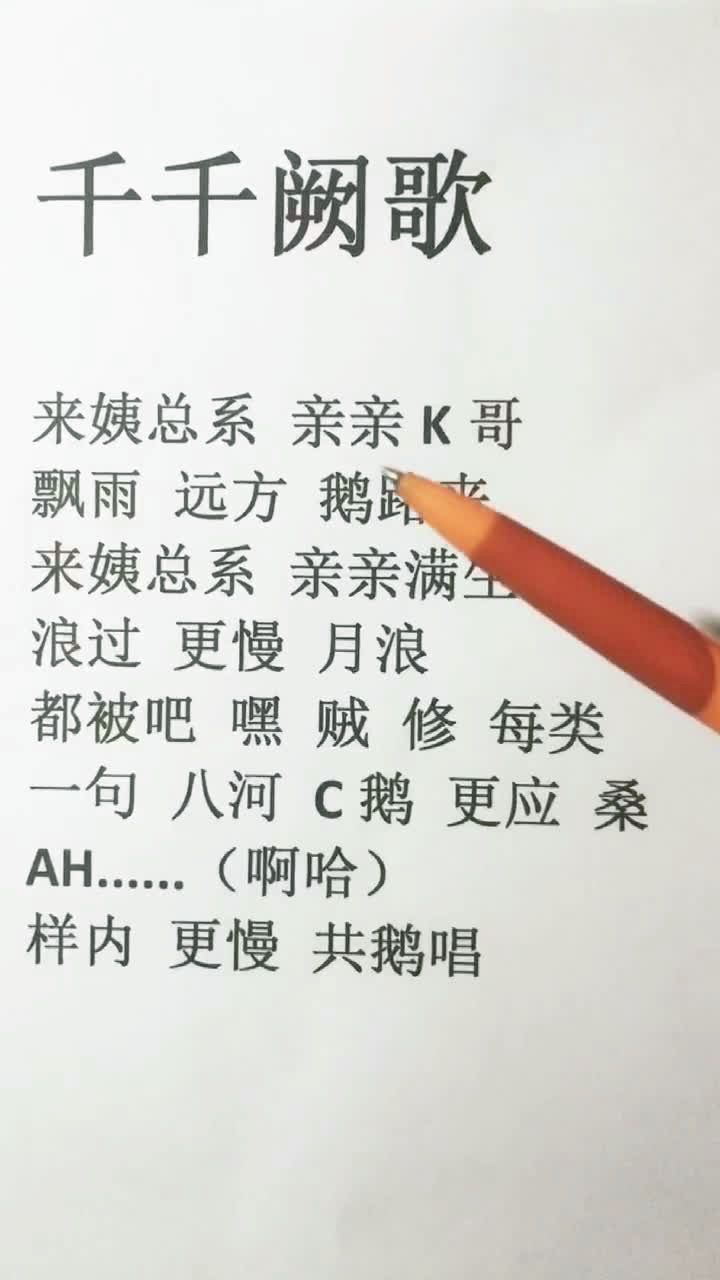 千千阙歌
来姨总系 亲亲 K 哥
飘雨 远方 鹅路来
来姨总系 亲亲满
浪过 更慢 月浪
都被吧 嘿 贼 修 每类
一句 八河 C 鹅 更应 桑
AH......（啊哈）
样内 更慢 共鹅唱